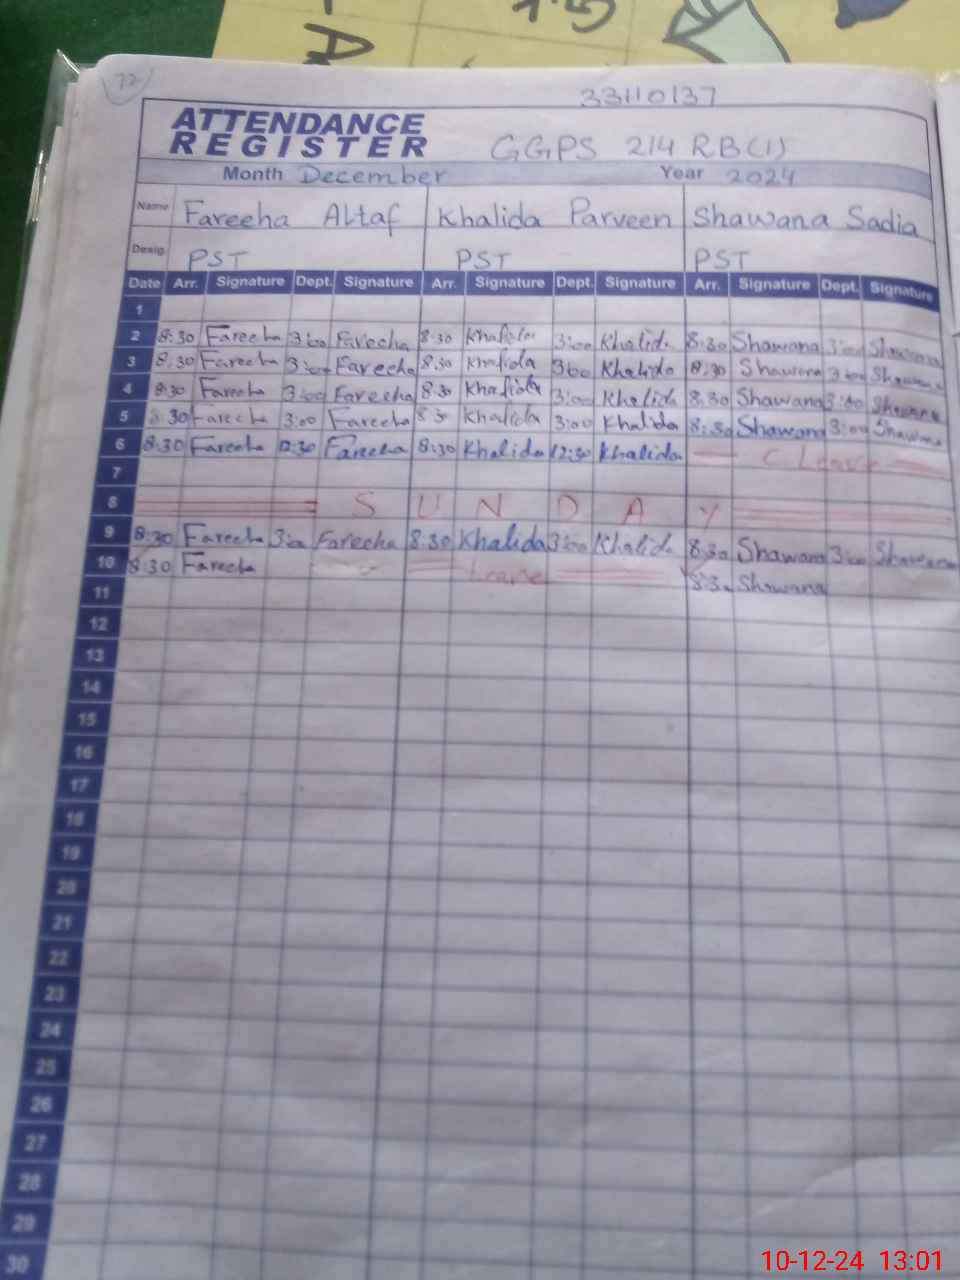 72
33110137
ATTENDANCE
REGISTER GGPS 214 RB(1)
Month December Year 2024
Name Fareeha Altaf Khalida Parveen Shawana Sadia
Desig. PST PST PST
Date Arr. Signature Dept. Signature Arr. Signature Dept. Signature Arr. Signature Dept. Signature
1
2 8:30 Fareeha 3:00 Fareeha 8:30 Khalida 3:00 Khalida 8:30 Shawana 3:00 Shawana
3 8:30 Fareeha 3:00 Fareeha 8:30 Khalida 3:00 Khalida 8:30 Shawana 3:00 Shawana
4 8:30 Fareeha 3:00 Fareeha 8:30 Khalida 3:00 Khalida 8:30 Shawana 3:00 Shawana
5 8:30 Fareeha 3:00 Fareeha 8:30 Khalida 3:00 Khalida 8:30 Shawana 3:00 Shawana
6 8:30 Fareeha 12:30 Fareeha 8:30 Khalida 12:30 Khalida C Leave
7
8 SUNDAY
9 8:30 Fareeha 3:00 Fareeha 8:30 Khalida 3:00 Khalida 8:30 Shawana 3:00 Shawana
10 8:30 Fareeha Leave 8:30 Shawana
11
12
13
14
15
16
17
18
19
20
21
22
23
24
25
26
27
28
29
30
10-12-24 13:01